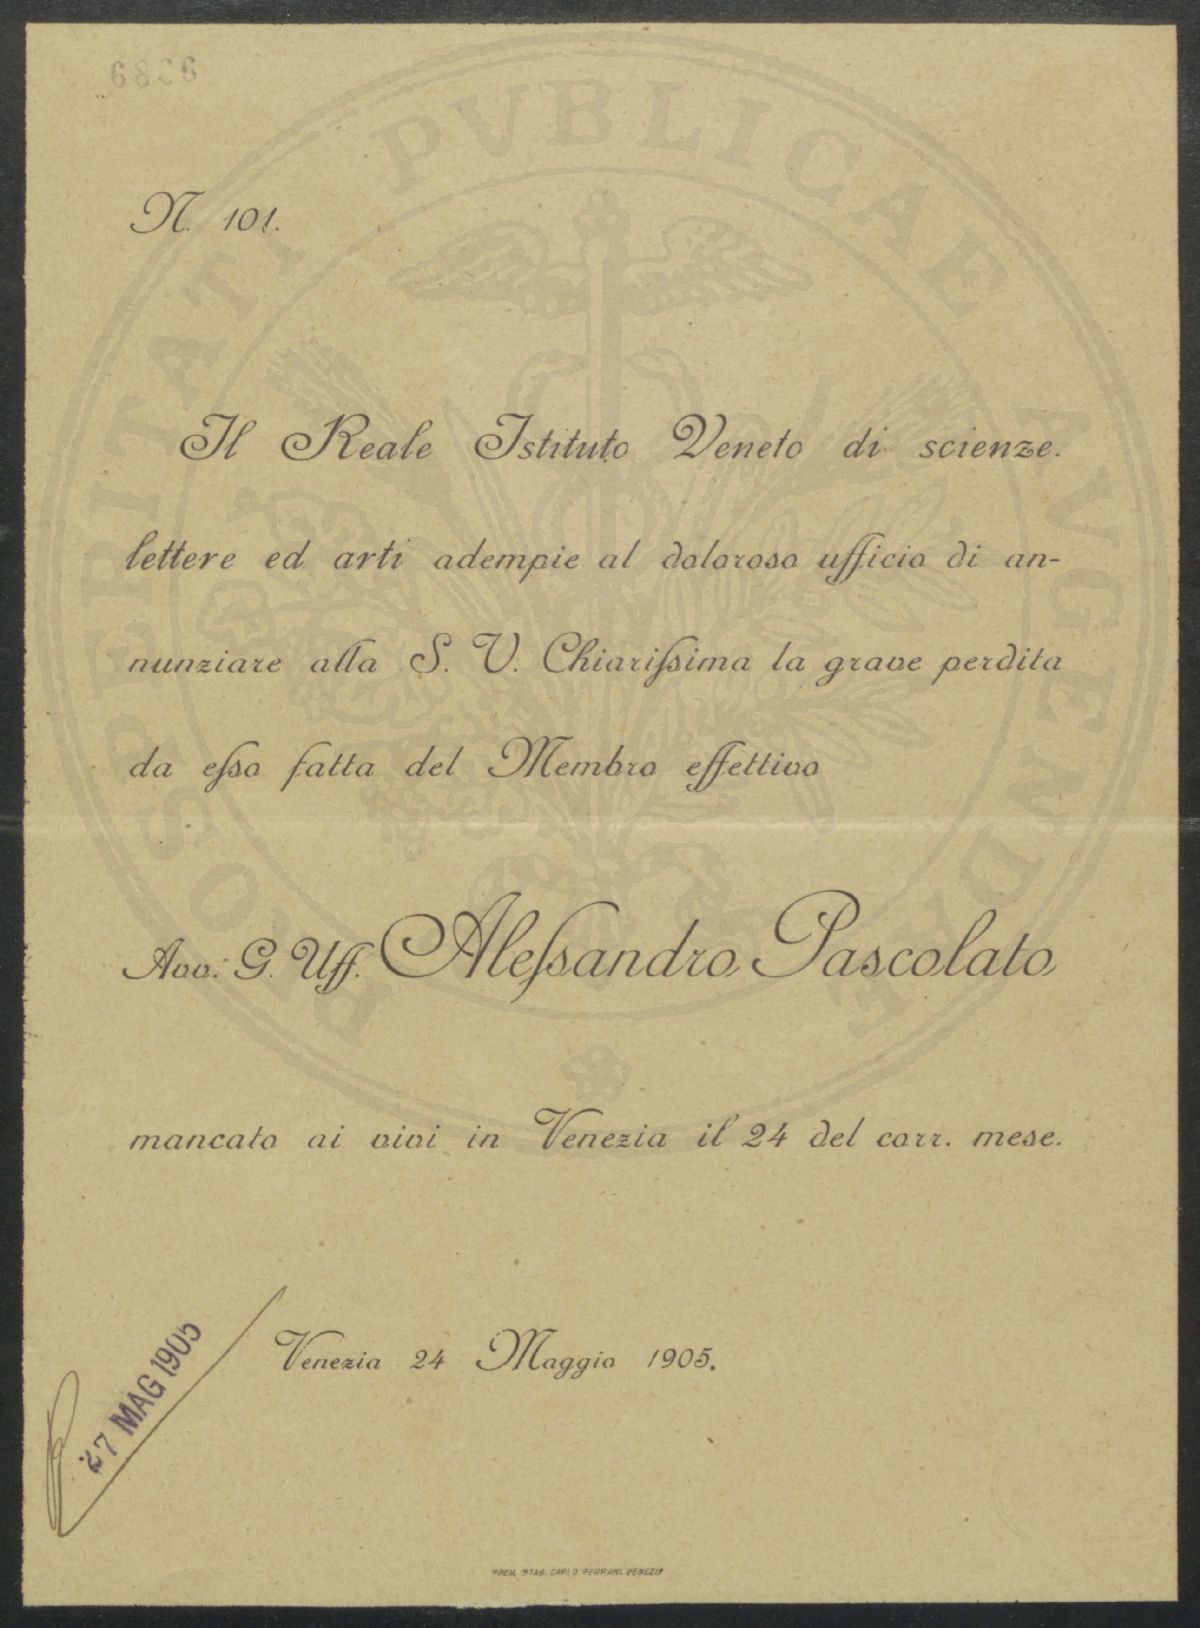 N. 101.
Il Reale Istituto Veneto di scienze.
lettere ed arti adempie al doloroso ufficio di an-
nunziare alla S. V. Chiarissima la grave perdita
da esso fatta del Membro effettivo
Avv. G. Uff. Alessandro Pascolato
mancato ai vivi in Venezia il 24 del corr. mese.
27 MAG 1905
Venezia 24 Maggio 1905.
PREM. STAB. CARLO FERRARI. VENEZIA
PROSPERITATI PVBLICAE AVGENDAE